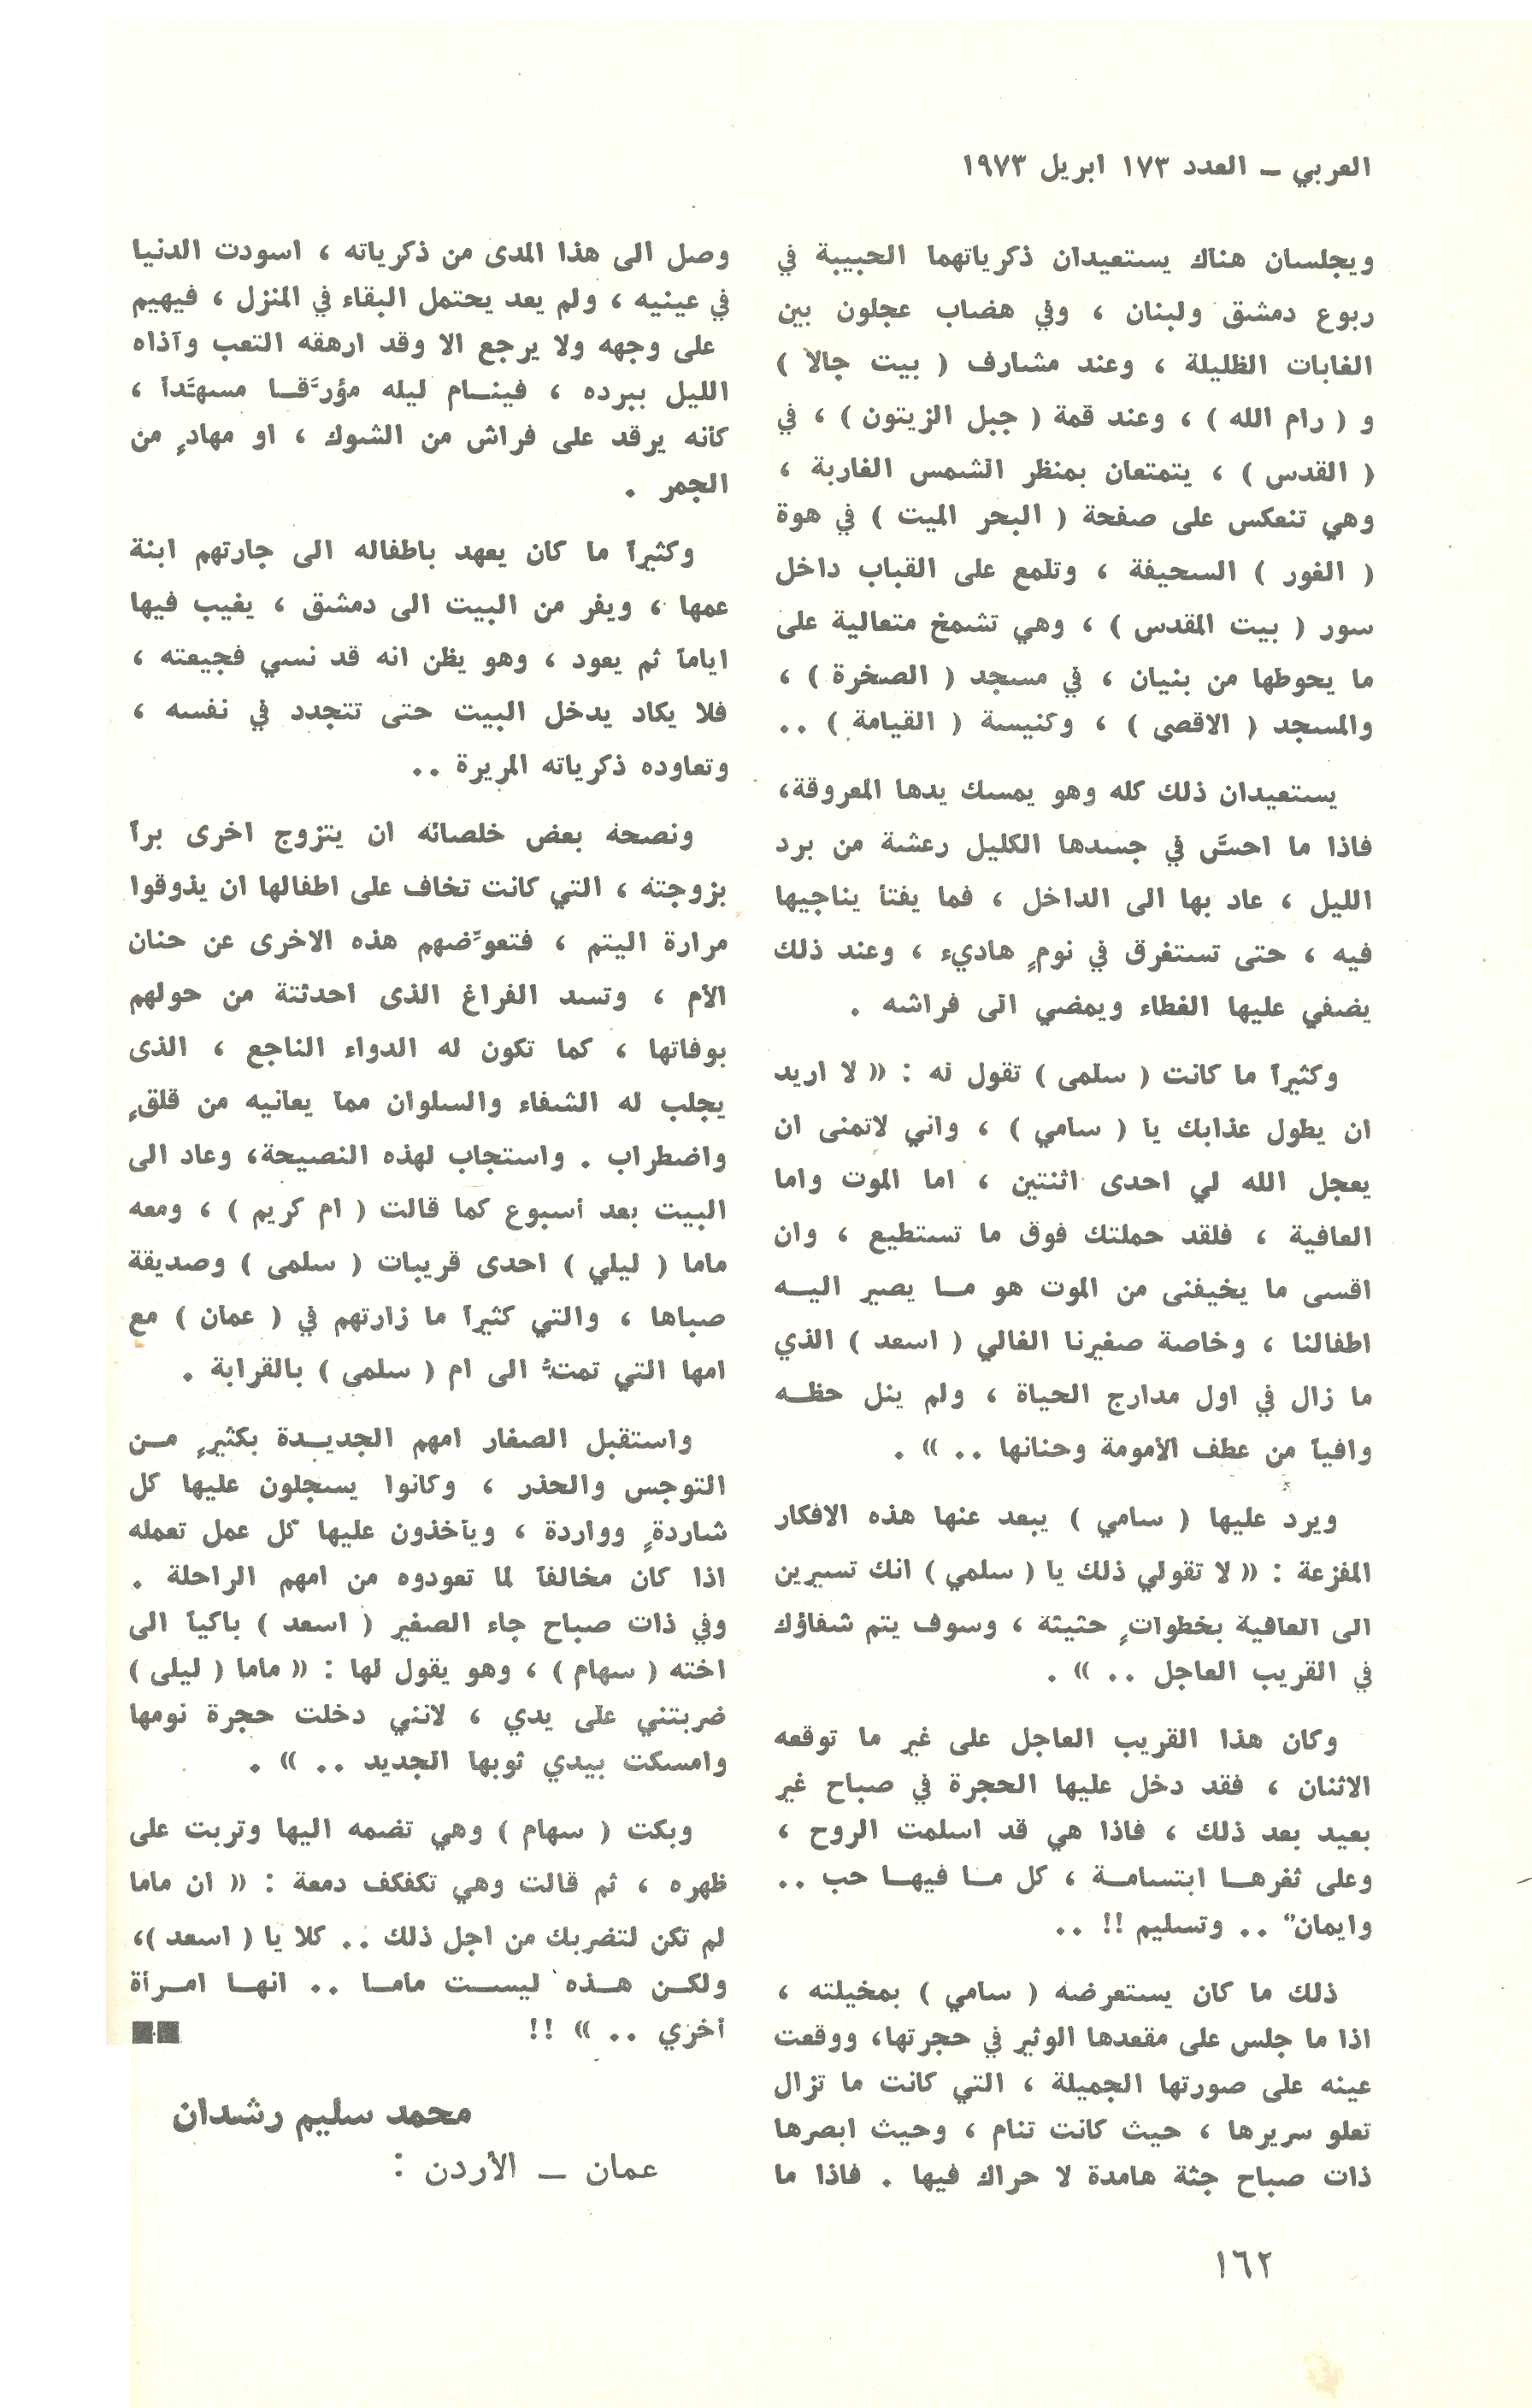 العربي ــ العدد ١٧٣ ابريل ١٩٧٣
ويجلسان هناك يستعيدان ذكرياتهما الحبيبة في
ربوع دمشق ولبنان ، وفي هضاب عجلون بين
الغابات الظليلة ، وعند مشارف ( بيت جالا )
و ( رام الله ) ، وعند قمة ( جبل الزيتون ) ، في
( القدس ) ، يتمتعان بمنظر الشمس الغاربة ،
وهي تنعكس على صفحة ( البحر الميت ) في هوة
( الغور ) السحيفة ، وتلمع على القباب داخل
سور ( بيت المقدس ) ، وهي تشمخ متعالية على
ما يحوطها من بنيان ، في مسجد ( الصخرة ) ،
والمسجد ( الاقصى ) ، وكنيسة ( القيامة ) ..
يستعيدان ذلك كله وهو يمسك يدها المعروقة،
فاذا ما احسَّ في جسدها الكليل رعشة من برد
الليل ، عاد بها الى الداخل ، فما يفتأ يناجيها
فيه ، حتى تستغرق في نومٍ هاديء ، وعند ذلك
يضفي عليها الغطاء ويمضي الى فراشه .
وكثيراً ما كانت ( سلمى ) تقول له : « لا اريد
ان يطول عذابك يا ( سامي ) ، واني لاتمنى ان
يعجل الله لي احدى اثنتين ، اما الموت واما
العافية ، فلقد حملتك فوق ما تستطيع ، وان
اقسى ما يخيفنى من الموت هو مـا يصير اليـه
اطفالنا ، وخاصة صغيرنا الغالي ( اسعد ) الذي
ما زال في اول مدارج الحياة ، ولم ينل حظـه
وافياً من عطف الأمومة وحنانها .. » .
ويرد عليها ( سامي ) يبعد عنها هذه الافكار
المفزعة : « لا تقولي ذلك يا ( سلمي ) انك تسيرين
الى العافية بخطواتٍ حثيثة ، وسوف يتم شفاؤك
في القريب العاجل .. » .
وكان هذا القريب العاجل على غير ما توقعه
الاثنان ، فقد دخل عليها الحجرة في صباح غير
بعيد بعد ذلك ، فاذا هي قد اسلمت الروح ،
وعلى ثغرهـا ابتسامـة ، كل مـا فيهـا حب ..
وايمانٌ .. وتسليم !! ..
ذلك ما كان يستعرضه ( سامي ) بمخيلته ،
اذا ما جلس على مقعدها الوثير في حجرتها، ووقعت
عينه على صورتها الجميلة ، التي كانت ما تزال
تعلو سريرها ، حيث كانت تنام ، وحيث ابصرها
ذات صباح جثة هامدة لا حراك فيها . فاذا ما
وصل الى هذا المدى من ذكرياته ، اسودت الدنيا
في عينيه ، ولم يعد يحتمل البقاء في المنزل ، فيهيم
على وجهه ولا يرجع الا وقد ارهقه التعب وآذاه
الليل ببرده ، فينـام ليله مؤرَّقـا مسهَّداً ،
كأنه يرقد على فراش من الشوك ، او مهادٍ من
الجمر .
وكثيراً ما كان يعهد باطفاله الى جارتهم ابنة
عمها ، ويفر من البيت الى دمشق ، يغيب فيها
اياماً ثم يعود ، وهو يظن انه قد نسي فجيعته ،
فلا يكاد يدخل البيت حتى تتجدد في نفسه ،
وتعاوده ذكرياته المريرة ..
ونصحه بعض خلصائه ان يتزوج اخرى براً
بزوجته ، التي كانت تخاف على اطفالها ان يذوقوا
مرارة اليتم ، فتعوِّضهم هذه الاخرى عن حنان
الأم ، وتسد الفراغ الذى احدثتة من حولهم
بوفاتها ، كما تكون له الدواء الناجع ، الذى
يجلب له الشفاء والسلوان مما يعانيه من قلقٍ
واضطراب . واستجاب لهذه النصيحة، وعاد الى
البيت بعد أسبوع كما قالت ( ام كريم ) ، ومعه
ماما ( ليلي ) احدى قريبات ( سلمى ) وصديقة
صباها ، والتي كثيراً ما زارتهم في ( عمان ) مع
امها التي تمتُّ الى ام ( سلمى ) بالقرابة .
واستقبل الصغار امهم الجديـدة بكثيرٍ مـن
التوجس والحذر ، وكانوا يسجلون عليها كل
شاردةٍ وواردة ، ويأخذون عليها كل عمل تعمله
اذا كان مخالفاً لما تعودوه من امهم الراحلة .
وفي ذات صباح جاء الصغير ( اسعد ) باكياً الى
اخته ( سهام ) ، وهو يقول لها : « ماما ( ليلى )
ضربتني على يدي ، لانني دخلت حجرة نومها
وامسكت بيدي ثوبها الجديد .. » .
وبكت ( سهام ) وهي تضمه اليها وتربت على
ظهره ، ثم قالت وهي تكفكف دمعة : « ان ماما
لم تكن لتضربك من اجل ذلك .. كلا يا ( اسعد )،
ولكـن هـذه ليسـت مامـا .. انهـا امـرأة
أخرى .. » !!
محمد سليم رشدان
عمان ــ الأردن :
١٦٢